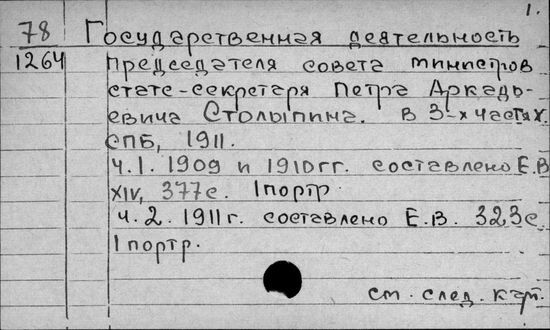 1.
78 Государственная деятельность
1264 председателя совета министров
статс-секретаря Петра Аркадь-
евича Столыпина. В 3-х частях.
СПБ, 1911.
ч. 1. 1909 и 1910 гг. составлено Е.В
XIV, 377с. 1портр.
ч. 2. 1911 г. составлено Е.В. 323с.
1 портр.
см. след. карт.